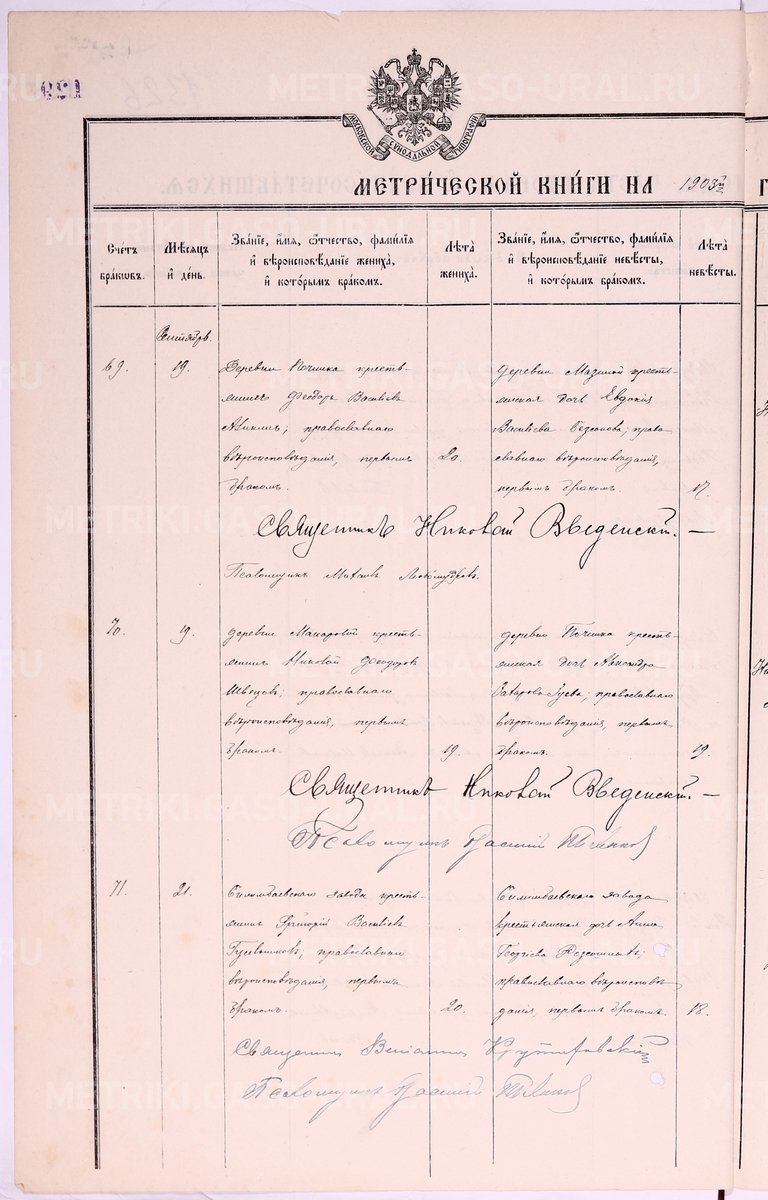 МОСКОВСКОЙ СѴНОДАЛЬНОЙ ТИПОГРАФІИ
МЕТРИ́ЧЕСКОЙ КНИ́ГИ НА 1903й Г
Сче́тъ бра́кωвъ.
Мѣ́сяцъ и҆ де́нь.
Зва́нїе, и҆́мя, ѻ҆́тчество, фами́лїя и҆ вѣроисповѣ́данїе жениха̀, и҆ кото́рымъ бра́комъ.
Лѣ́та жениха̀.
Зва́нїе, и҆́мя, ѻ҆́тчество, фами́лїя и҆ вѣроисповѣ́данїе невѣ́сты, и҆ кото́рымъ бра́комъ.
Лѣ́та невѣ́сты.
Сентябрь.
69.
19.
Деревни Починка кресть-
янинъ Феодоръ Васильевъ
православнаго
вѣроисповѣданія, первымъ
бракомъ.
20.
Деревни кресть-
янская дочь Евдокія
Васильева право
славнаго вѣроисповѣданія,
первымъ бракомъ.
17.
Священникъ Николай Введенскій.
Псаломщикъ Любомудровъ.
70.
19.
деревни Макаровой кресть-
янинъ Николай Феодоровъ
Швецовъ; православнаго
вѣроисповѣданія, первымъ
бракомъ.
19.
деревни Починка кресть-
янская дочь Александра
Захарова Гусева; православнаго
вѣроисповѣданія, первымъ
бракомъ.
19.
Священникъ Николай Введенскій.
Псаломщикъ
71.
21.
Билимбаевскаго завода кресть-
янинъ Григорій Васильевъ
православнаго
вѣроисповѣданія, первымъ
бракомъ.
20.
Билимбаевскаго завода
крестьянская дочь Анна
Георгіева
православнаго вѣроисповѣ
данія, первымъ бракомъ.
18.
Священникъ Веніаминъ
Псаломщикъ
METRIKI.GASO-URAL.RU